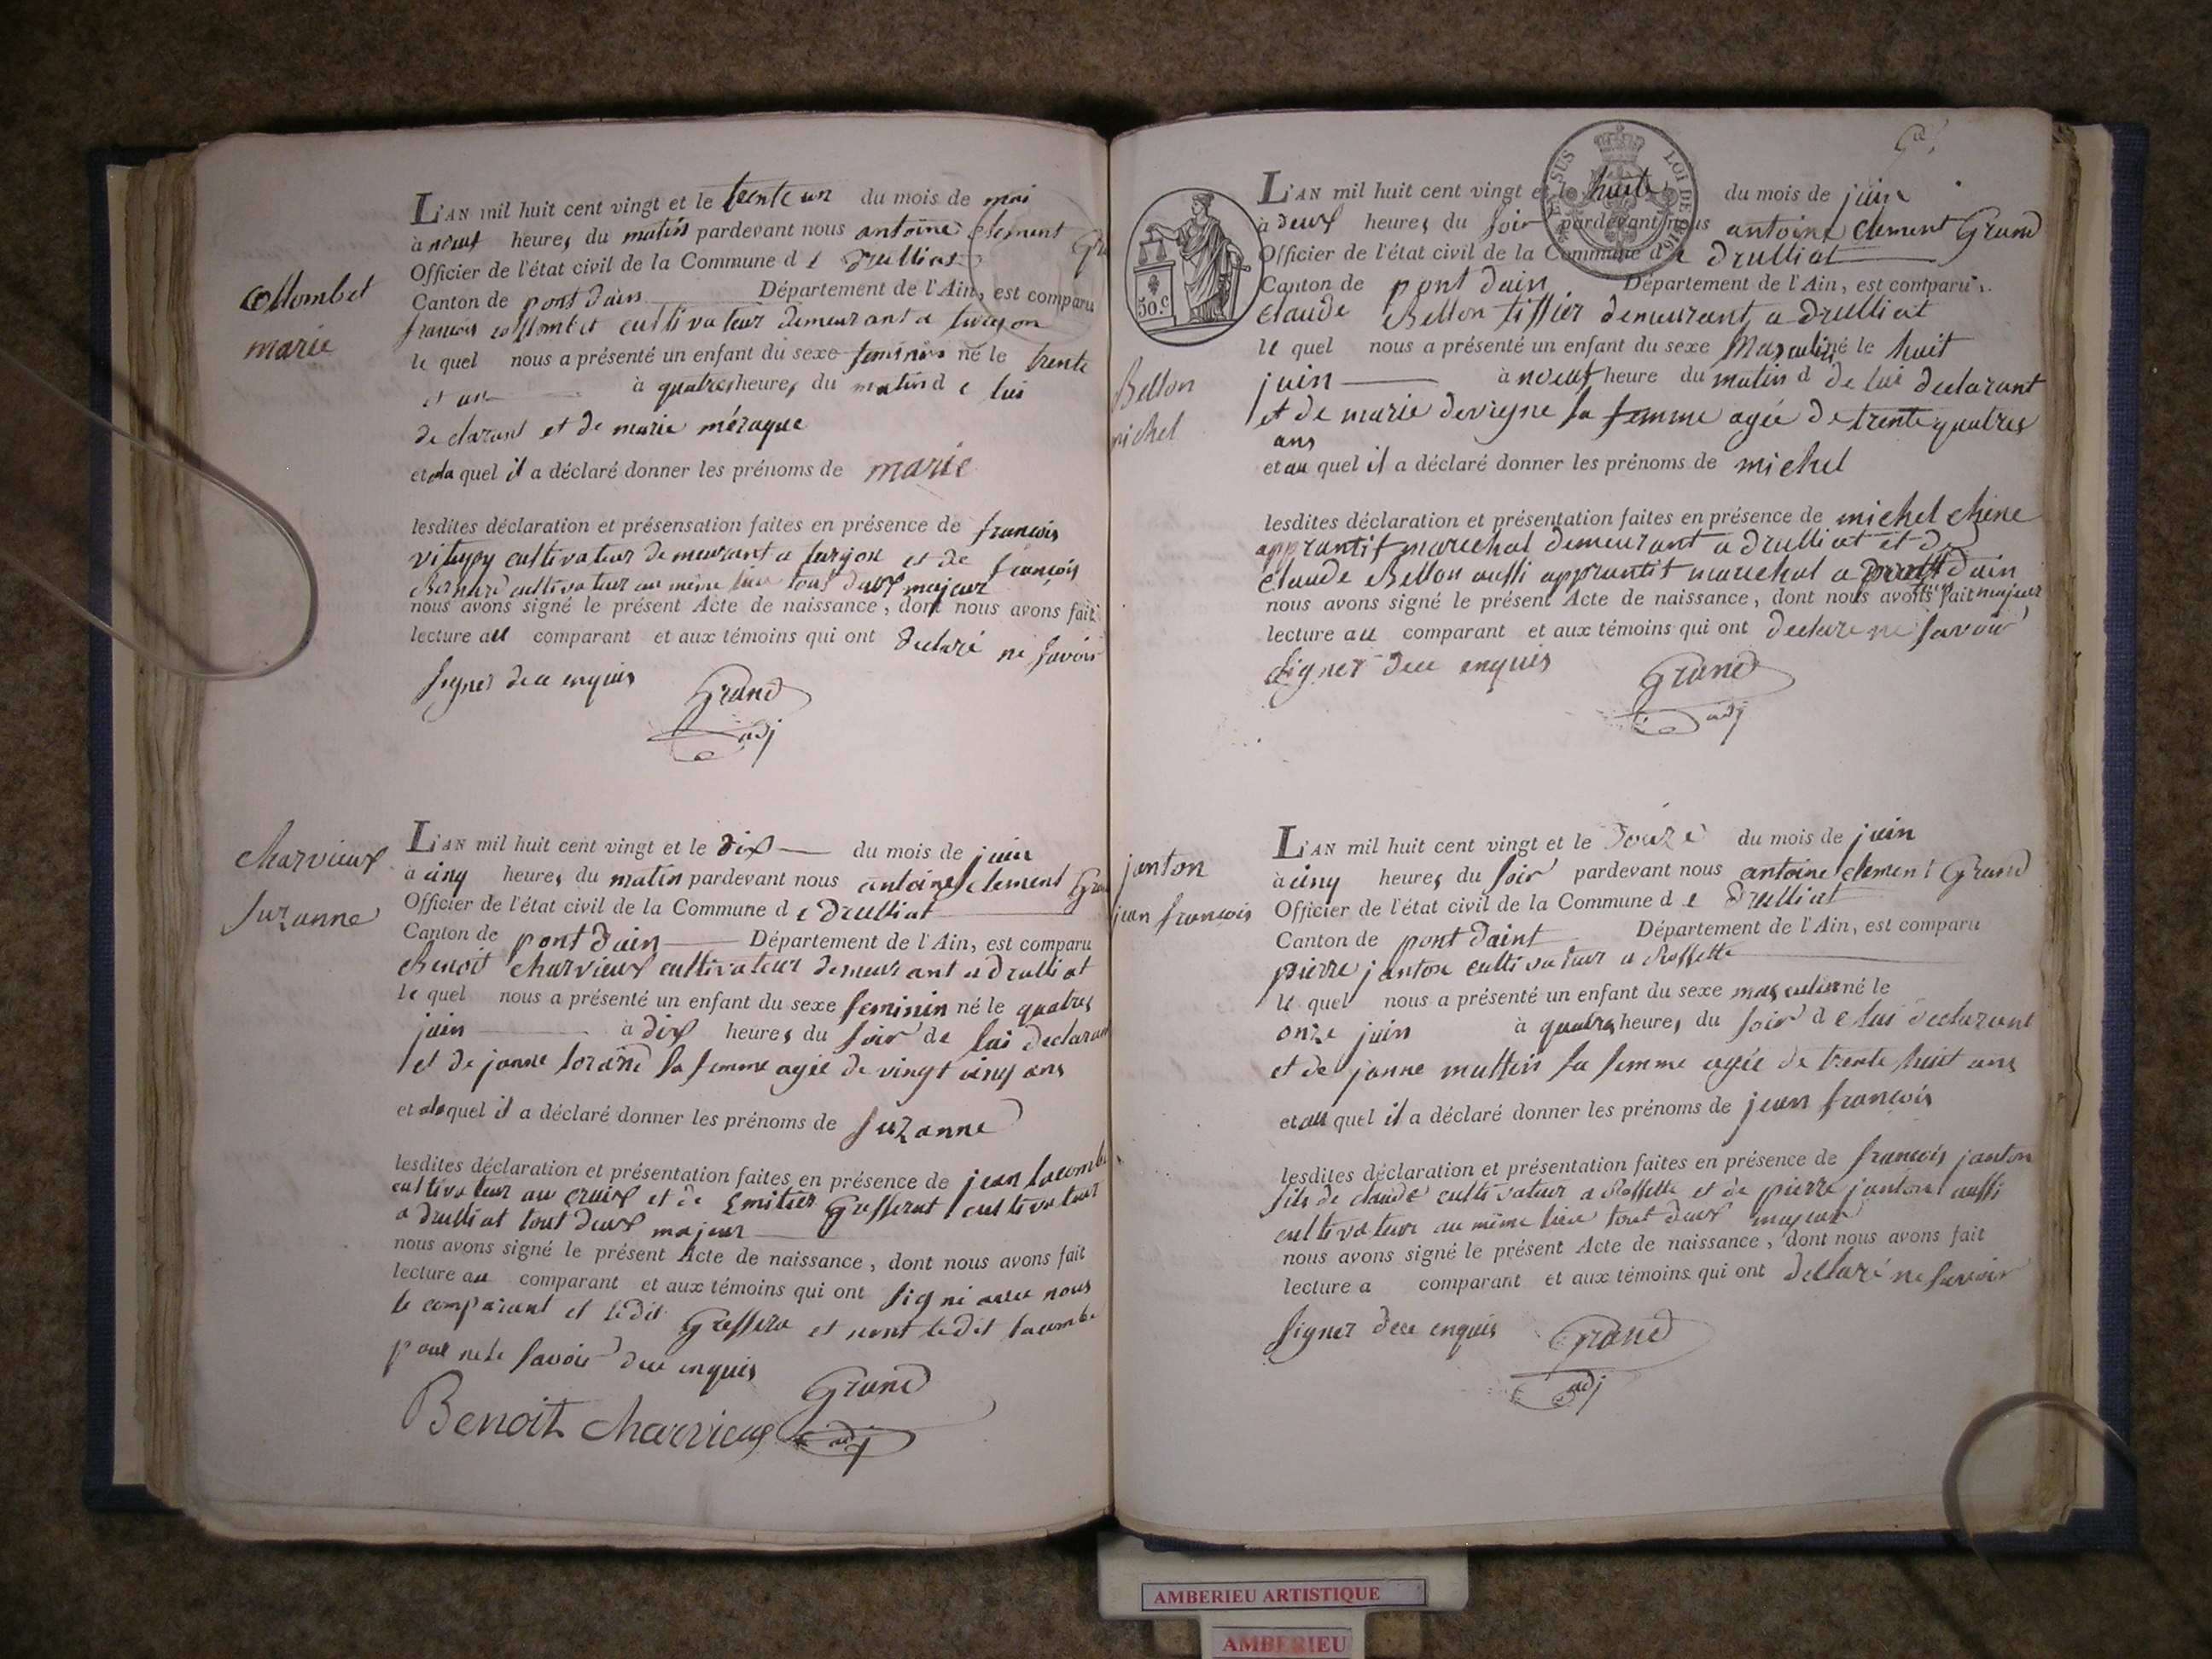 Collombet
marie
L'AN mil huit cent vingt et le trente un du mois de mai
à neuf heures du matin pardevant nous antoine clement Gra
Officier de l'état civil de la Commune de Druilliat
Canton de pont dain Département de l'Ain, est comparu
francois collombet cultivateur demeurant a turgon
le quel nous a présenté un enfant du sexe feminin né le trente
et un à quatres heures du matin de lui
declarant et de marie méraque
et ala quel il a déclaré donner les prénoms de marie
lesdites déclaration et présensation faites en présence de françois
vitupy cultivateur demeurant a turgon et de françois
Bernard cultivateur au même lieu tous deux majeur
nous avons signé le présent Acte de naissance, dont nous avons fait
lecture au comparant et aux témoins qui ont declaré ne savoir
signer de ce enquis
Grand
adj
charvieux
suzanne
L'AN mil huit cent vingt et le dix du mois de juin
à cinq heures du matin pardevant nous antoine clement Gran
Officier de l'état civil de la Commune de Druilliat
Canton de pont dain Département de l'Ain, est comparu
Benoit charvieux cultivateur demeurant a druilliat
le quel nous a présenté un enfant du sexe feminin né le quatres
juin à dix heures du soir de lui declarant
et de janne lorand sa femme agée de vingt cinq ans
et ala quel il a déclaré donner les prénoms de suzanne
lesdites déclaration et présentation faites en présence de jean lacombe
cultivateur au cruix et de Emilier Gresserat cultivateur
a druilliat tout deux majeur
nous avons signé le présent Acte de naissance, dont nous avons fait
lecture au comparant et aux témoins qui ont signé avec nous
le comparant et ledit Gressera et nont ledit lacombe
pour ne le savoir de ce enquis
Grand
adj
Benoit charvieux
50.c
LOI DE 1816
L'AN mil huit cent vingt et le huit du mois de juin
à deux heures du soir pardevant nous antoine clement Grand
Officier de l'état civil de la Commune de Druilliat
Canton de pont dain Département de l'Ain, est comparu
claude Bellon tissier demeurant a druilliat
le quel nous a présenté un enfant du sexe Masculin né le huit
Bellon
michel
juin à neuf heure du matin d de lui declarant
et de marie devigne sa femme agée de trente quatres
ans
et au quel il a déclaré donner les prénoms de michel
lesdites déclaration et présentation faites en présence de michel chene
apprantif marechal demeurant a druilliat et de
claude Bellon aussi apprantif marechal a pont dain
nous avons signé le présent Acte de naissance, dont nous avons fait majeur
lecture au comparant et aux témoins qui ont declaré ne savoir
signer de ce enquis
Grand
adj
janton
jean francois
L'AN mil huit cent vingt et le douze du mois de juin
à cinq heures du soir pardevant nous antoine clement Grand
Officier de l'état civil de la Commune de Druilliat
Canton de pont daint Département de l'Ain, est comparu
pierre janton cultivateur a Rossette
le quel nous a présenté un enfant du sexe masculin né le
onze juin à quatres heures du soir de lui declarant
et de janne muttin sa femme agée de trente huit ans
et au quel il a déclaré donner les prénoms de jean françois
lesdites déclaration et présentation faites en présence de francois janton
fils de claude cultivateur a Rossette et de pierre janton aussi
cultivateur au même lieu tout deux majeur
nous avons signé le présent Acte de naissance, dont nous avons fait
lecture a comparant et aux témoins qui ont declaré ne savoir
signer de ce enquis
Grand
adj
AMBERIEU ARTISTIQUE
AMBERIEU